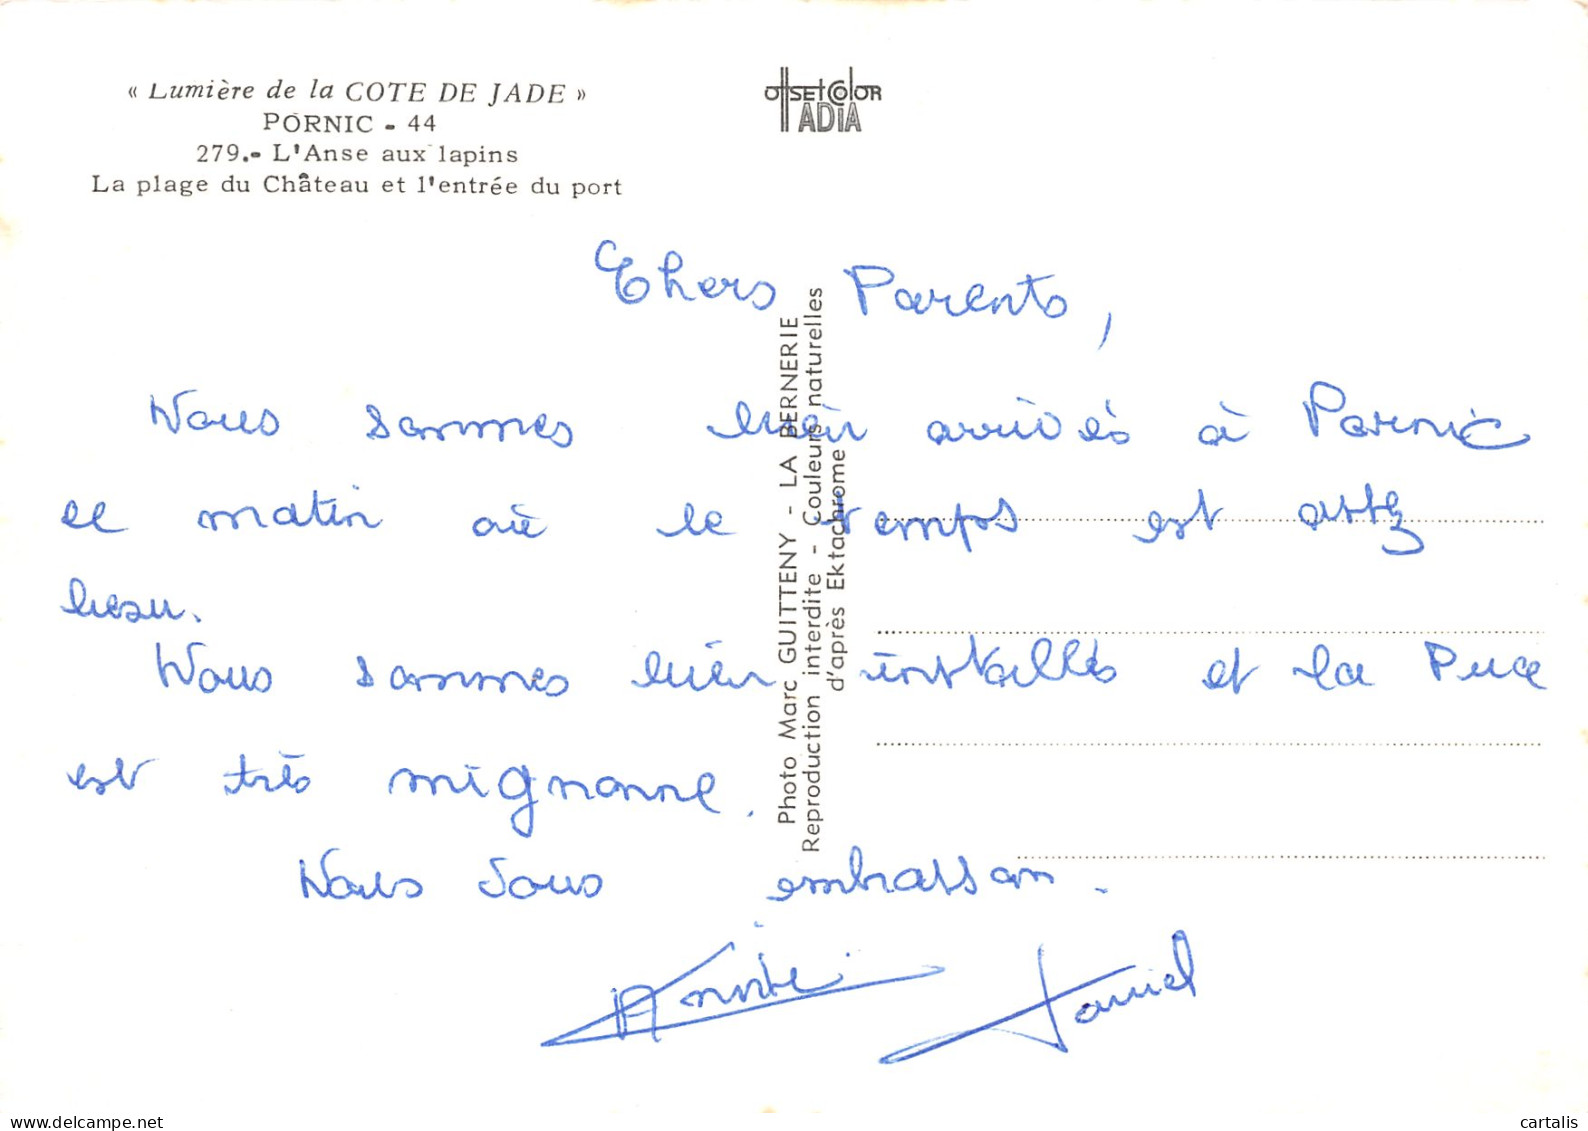 « Lumière de la COTE DE JADE »
PORNIC - 44
279.- L'Anse aux lapins
La plage du Château et l'entrée du port
OffsetColor
ADIA
Chers Parents,
Nous sommes bien arrivés à Pornic
ce matin où le temps est assez
beau.
Nous sommes bien installés et la Puce
est très mignonne.
Nous vous embrassons.
Daniel
Photo Marc GUITTENY - LA BERNERIE
Reproduction interdite - Couleurs naturelles
d'après Ektachrome
cartalis
delcampe.net